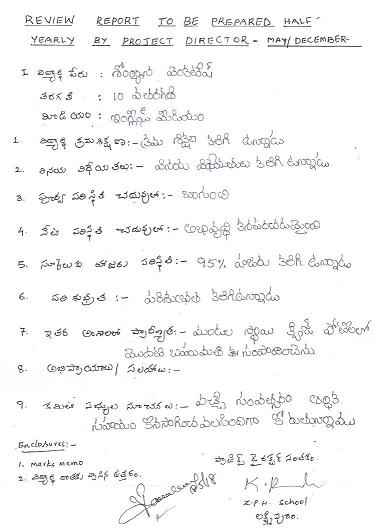 REVIEW REPORT TO BE PREPARED HALF
YEARLY BY PROJECT DIRECTOR - MAY/DECEMBER-
I. విద్యార్థి పేరు : వెంకటేష్
తరగతి : 10 వ తరగతి
మీడియం : ఇంగ్లీష్ మీడియం
1. విద్యార్థి క్రమశిక్షణ :- క్రమ శిక్షణ కలిగి ఉన్నాడు
2. వినయ విధేయతలు:- వినయ విధేయతలు కలిగి ఉన్నాడు
3. పూర్వ పరిస్థితి చదువులో:- బాగుంది
4. నేటి పరిస్థితి చదువులో:- అభివృద్ధి కనపరచడమైంది
5. స్కూలుకు హాజరు పరిస్థితి:- 95% హాజరు కలిగి ఉన్నాడు
6. పరిశుభ్రత :- పరిశుభ్రత కలిగిఉన్నాడు
7. ఇతర అంశాలలో ప్రావీణ్యత:- మండల స్థాయి క్విజ్ పోటీలలో
మొదటి బహుమతి సంపాదించెను
8. అభిప్రాయాలు/ సలహాలు:-
9. కమిటీ సభ్యుల సూచనలు:- వచ్చే సంవత్సరం ఆర్థిక
సహాయం కొనసాగించవలసిందిగా కోరుతున్నాము
Enclosures:-
1. marks memo
2. విద్యార్థి దాతకు వ్రాసిన ఉత్తరం.
ప్రాజెక్ట్ డైరెక్టర్ సంతకం.
Z.P.H. School
లక్ష్మీపురం.